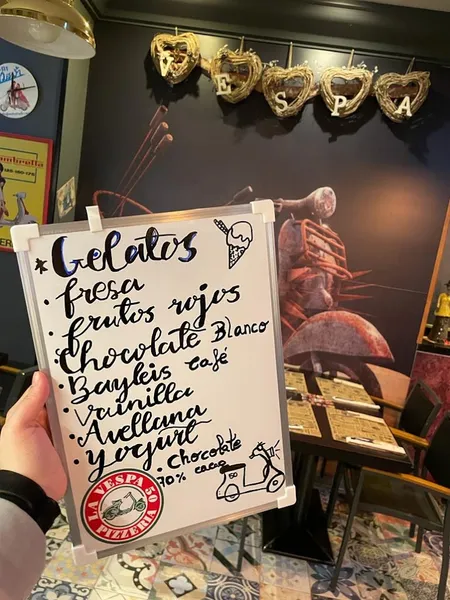 VESPA
* Gelatos
· fresa
· frutos rojos
· Chocolate Blanco
· Bayleis café
· Vainilla
· Avellana
· Yogurt
· Chocolate
70% cacao
LA VESPA 50
PIZZERIA